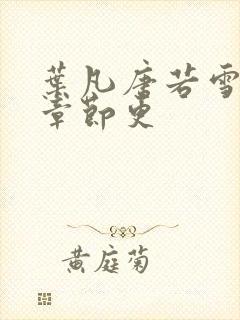 葉凡唐若雪
章節更
黃庭菊